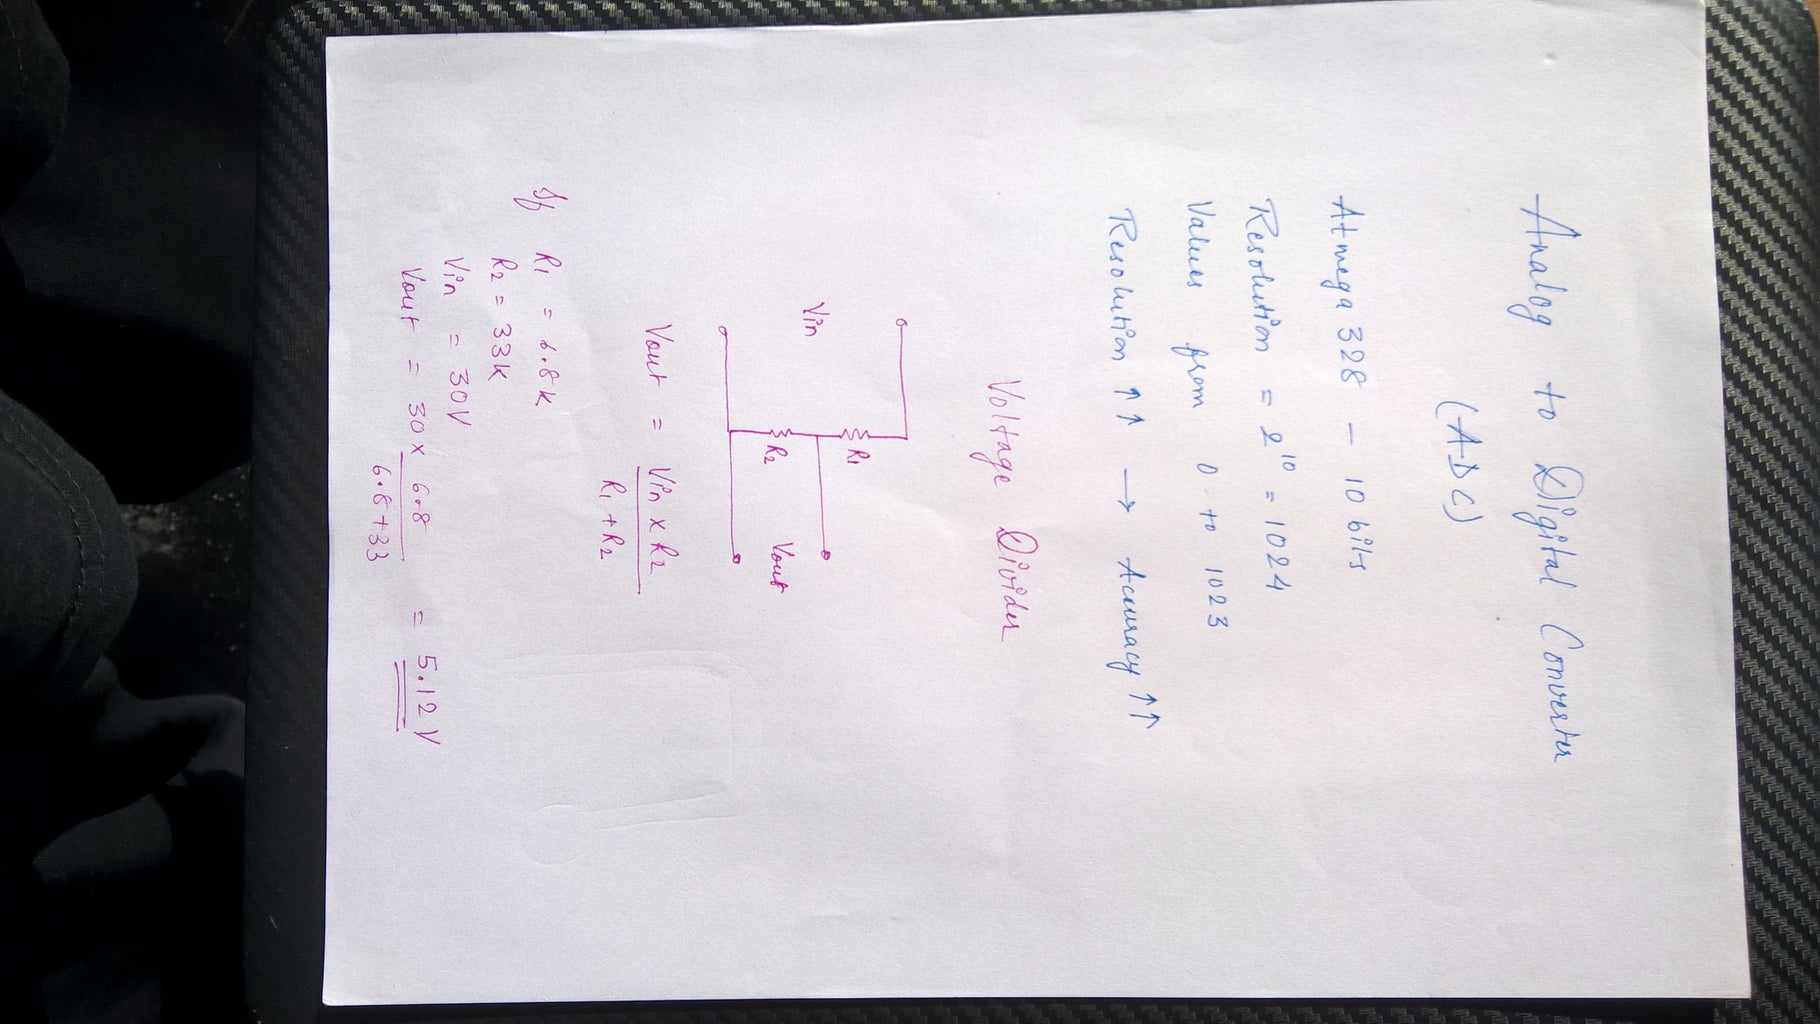 Analog to Digital Converter
(ADC)
Atmega 328 - 10 bits
Resolution = 2^10 = 1024
Values from 0 to 1023
Resolution ↑↑ → Acuracy ↑↑
Voltage Divider
R1
Vin
R2
Vout
Vout = Vin x R2
R1 + R2
If R1 = 6.8K
R2 = 33K
Vin = 30V
Vout = 30 x 6.8 = 5.12V
6.8+33